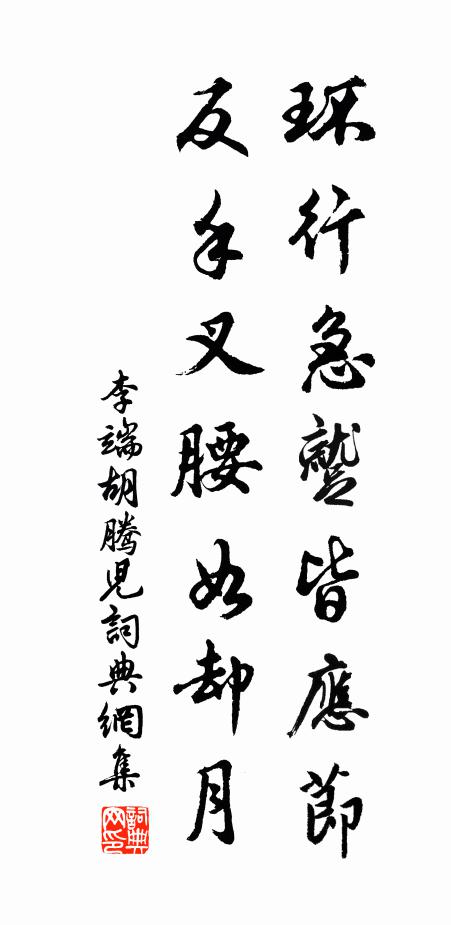 环行急蹵皆應節
反手叉腰如却月
李端胡騰児詞典網集
詞典网印